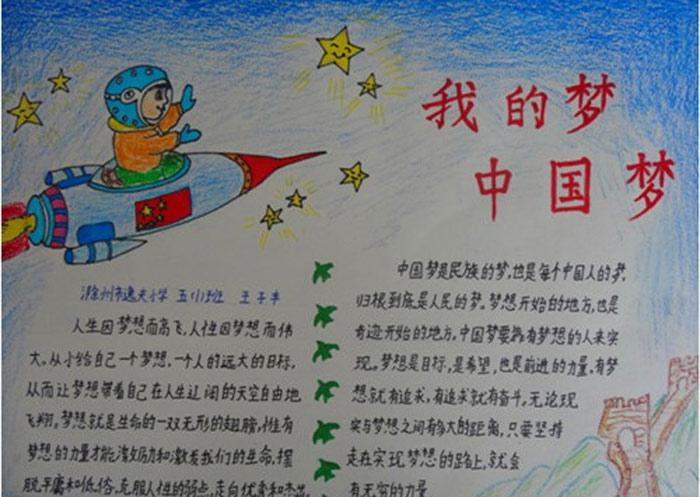 我的梦
中国梦
滁州市逸夫小学 五(1)班 王子丰
人生因梦想而高飞,人性因梦想而伟
大。从小给自己一个梦想,一个人的远大的目标,
从而让梦想带着自己在人生辽阔的天空自由地
飞翔。梦想就是生命的一双无形的翅膀,惟有
梦想的力量才能激励和激发我们的生命,摆
脱平庸和低俗,克服人性的弱点,走向优秀和杰出
中国梦是民族的梦,也是每个中国人的梦,
归根到底是人民的梦。梦想开始的地方,也是
奇迹开始的地方,中国梦要靠有梦想的人来实
现。梦想是目标,是希望,也是前进的力量,有梦
想就有追求,有追求就有奋斗,无论现
实与梦想之间有多大的距离,只要坚持
走在实现梦想的路上,就会
有无穷的力量